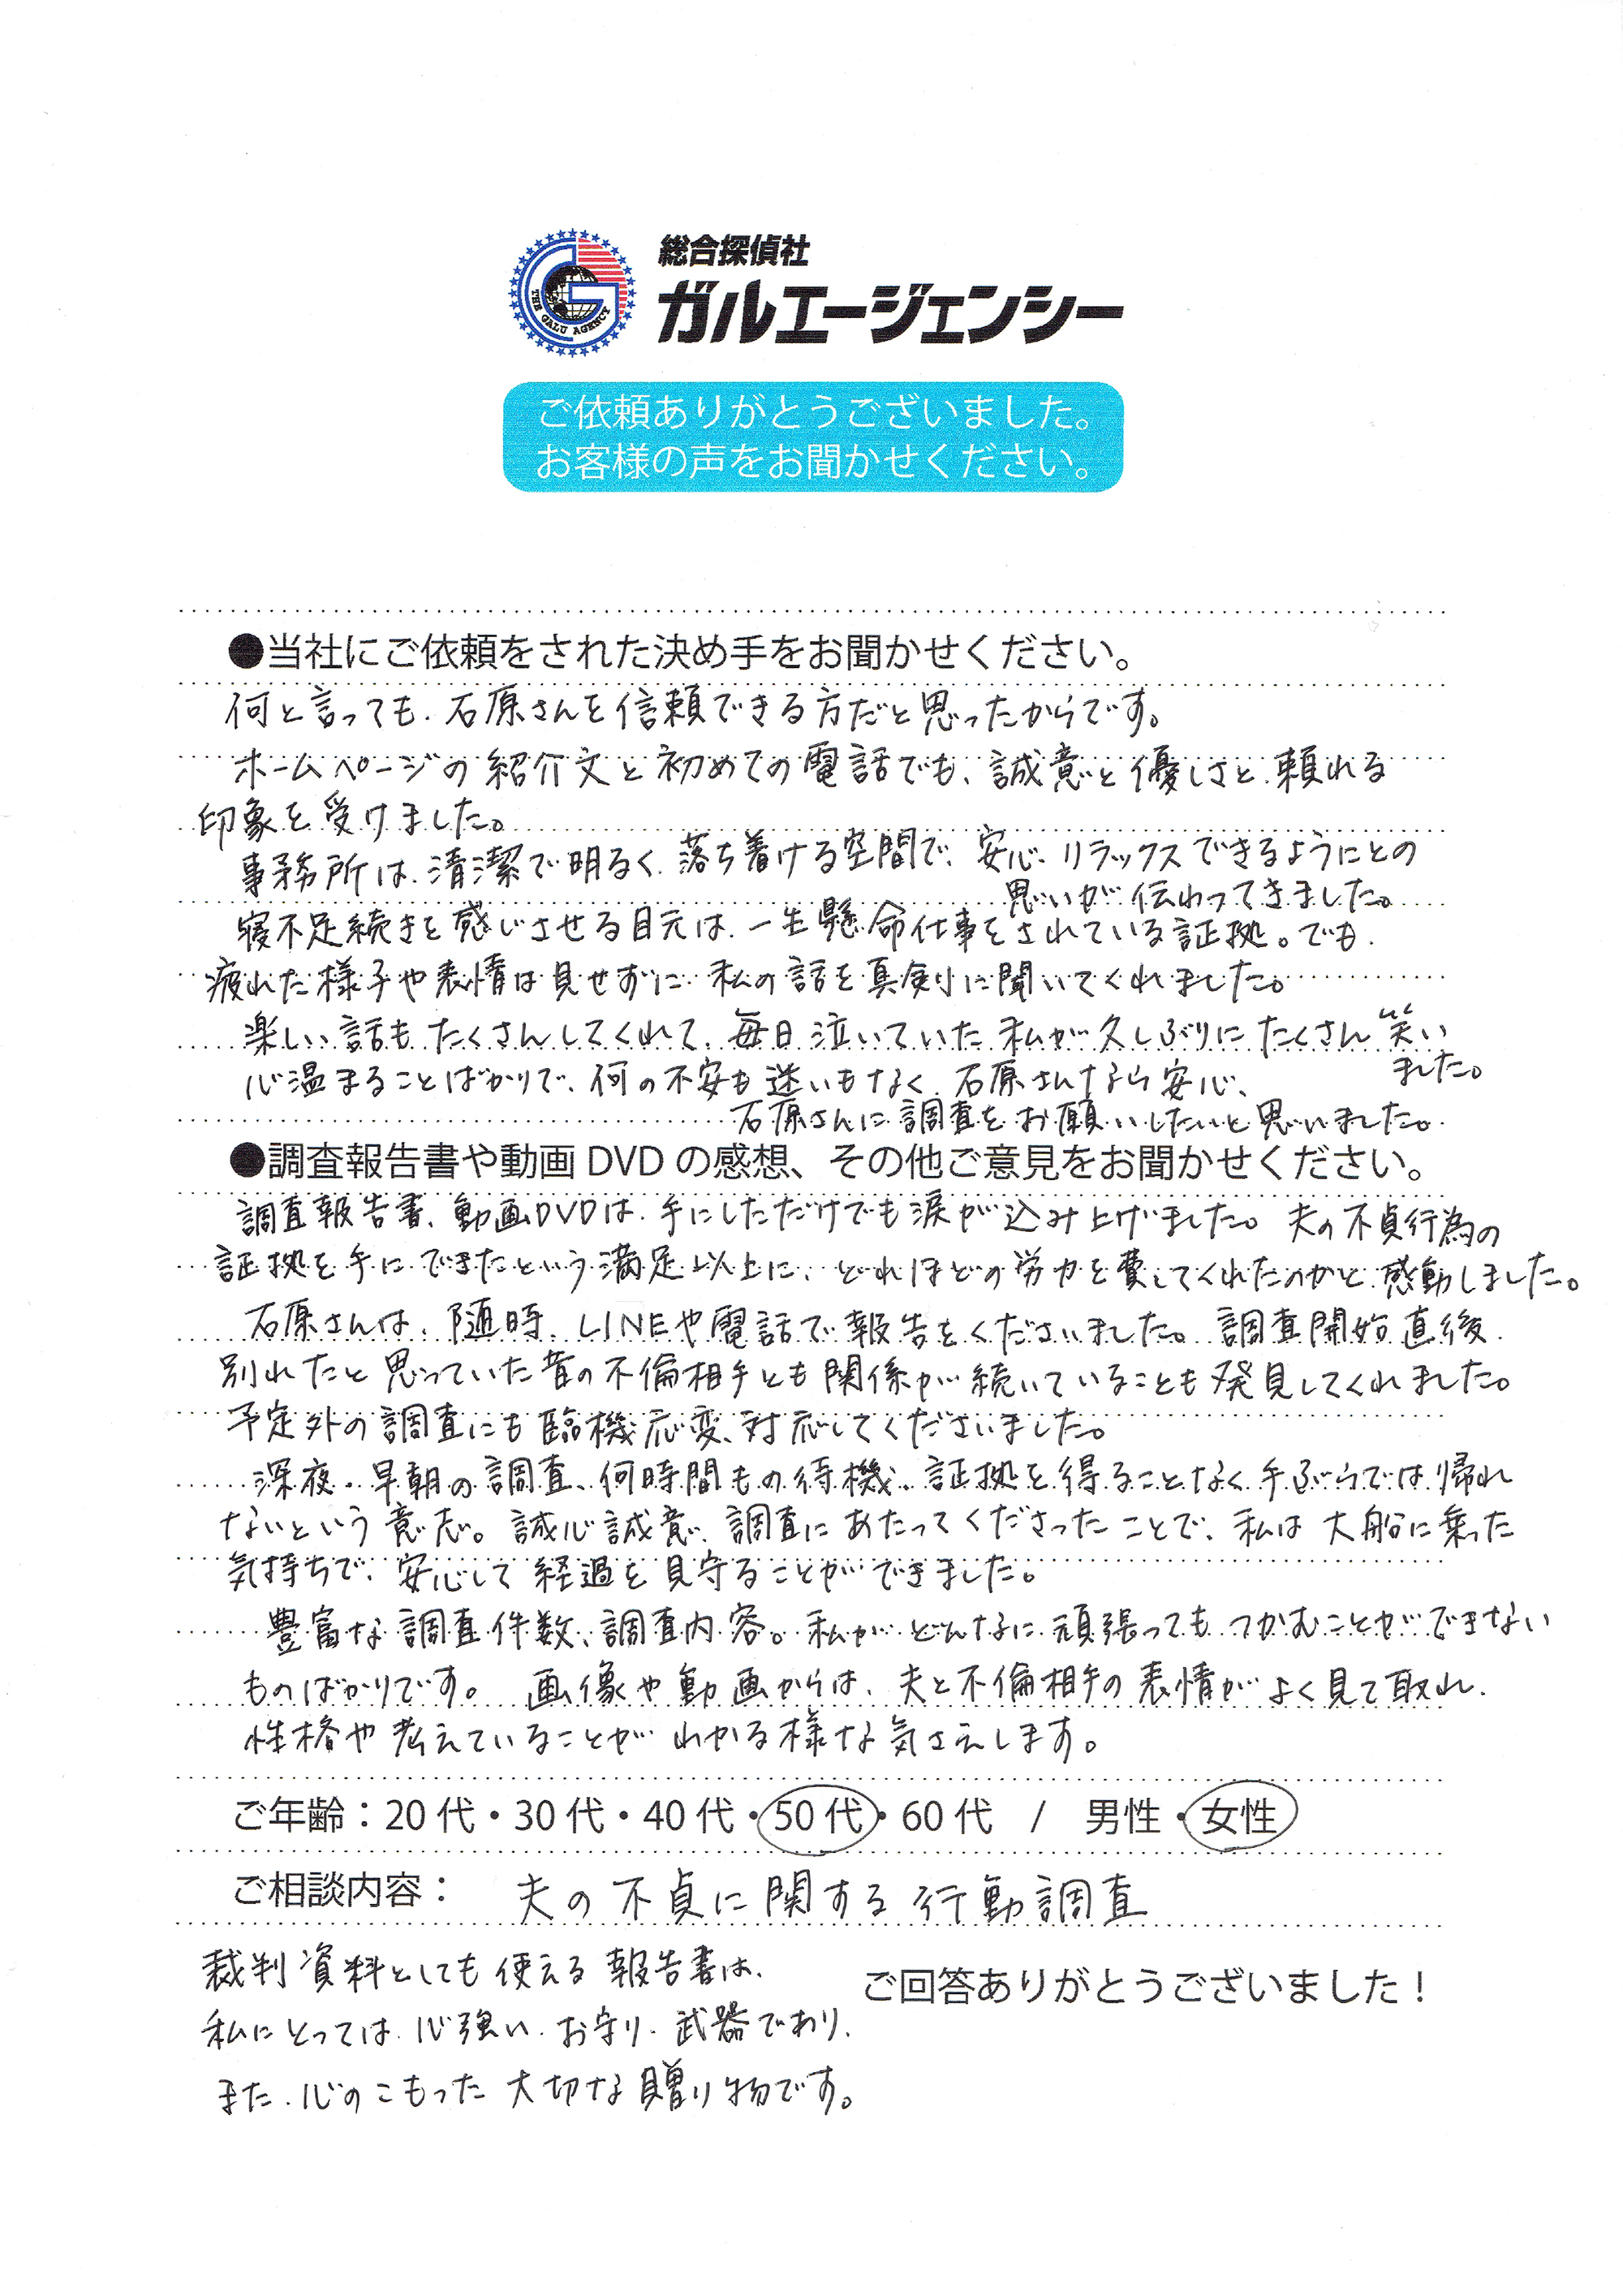 総合探偵社
ガルエージェンシー
THE GALU AGENCY
ご依頼ありがとうございました。
お客様の声をお聞かせください。
●当社にご依頼をされた決め手をお聞かせください。
何と言っても、石原さんを信頼できる方だと思ったからです。
ホームページの紹介文と初めての電話でも、誠意と優しさと、頼れる
印象を受けました。
事務所は、清潔で明るく、落ち着ける空間で、安心、リラックスできるようにとの
思いが伝わってきました。
寝不足続きを感じさせる目元は、一生懸命仕事をされている証拠。でも、
疲れた様子や表情は見せずに、私の話を真剣に聞いてくれました。
楽しい話もたくさんしてくれて、毎日泣いていた私が久しぶりにたくさん笑い
ました。
心温まることばかりで、何の不安も迷いもなく、石原さんなら安心、
石原さんに調査をお願いしたいと思いました。
●調査報告書や動画 DVD の感想、その他ご意見をお聞かせください。
調査報告書、動画DVDは、手にしただけでも涙が込み上げました。夫の不貞行為の
証拠を手にできたという満足以上に、どれほどの労力を費してくれたのかと感動しました。
石原さんは、随時、LINEや電話で報告をくださいました。調査開始直後、
別れたと思っていた昔の不倫相手とも関係が続いていることも発見してくれました。
予定外の調査にも臨機応変、対応してくださいました。
深夜・早朝の調査、何時間もの待機、証拠を得ることなく手ぶらでは帰れ
ないという意志。誠心誠意、調査にあたってくださったことで、私は大船に乗った
気持ちで、安心して経過を見守ることができました。
豊富な調査件数、調査内容。私がどんなに頑張ってもつかむことができない
ものばかりです。画像や動画からは、夫と不倫相手の表情がよく見て取れ、
性格や考えていることがわかる様な気さえします。
ご年齢：20 代・30 代・40 代・50 代・60 代 / 男性・女性
ご相談内容： 夫の不貞に関する行動調査
裁判資料としても使える報告書は、
私にとっては、心強い、お守り、武器であり、
また、心のこもった大切な贈り物です。
ご回答ありがとうございました！